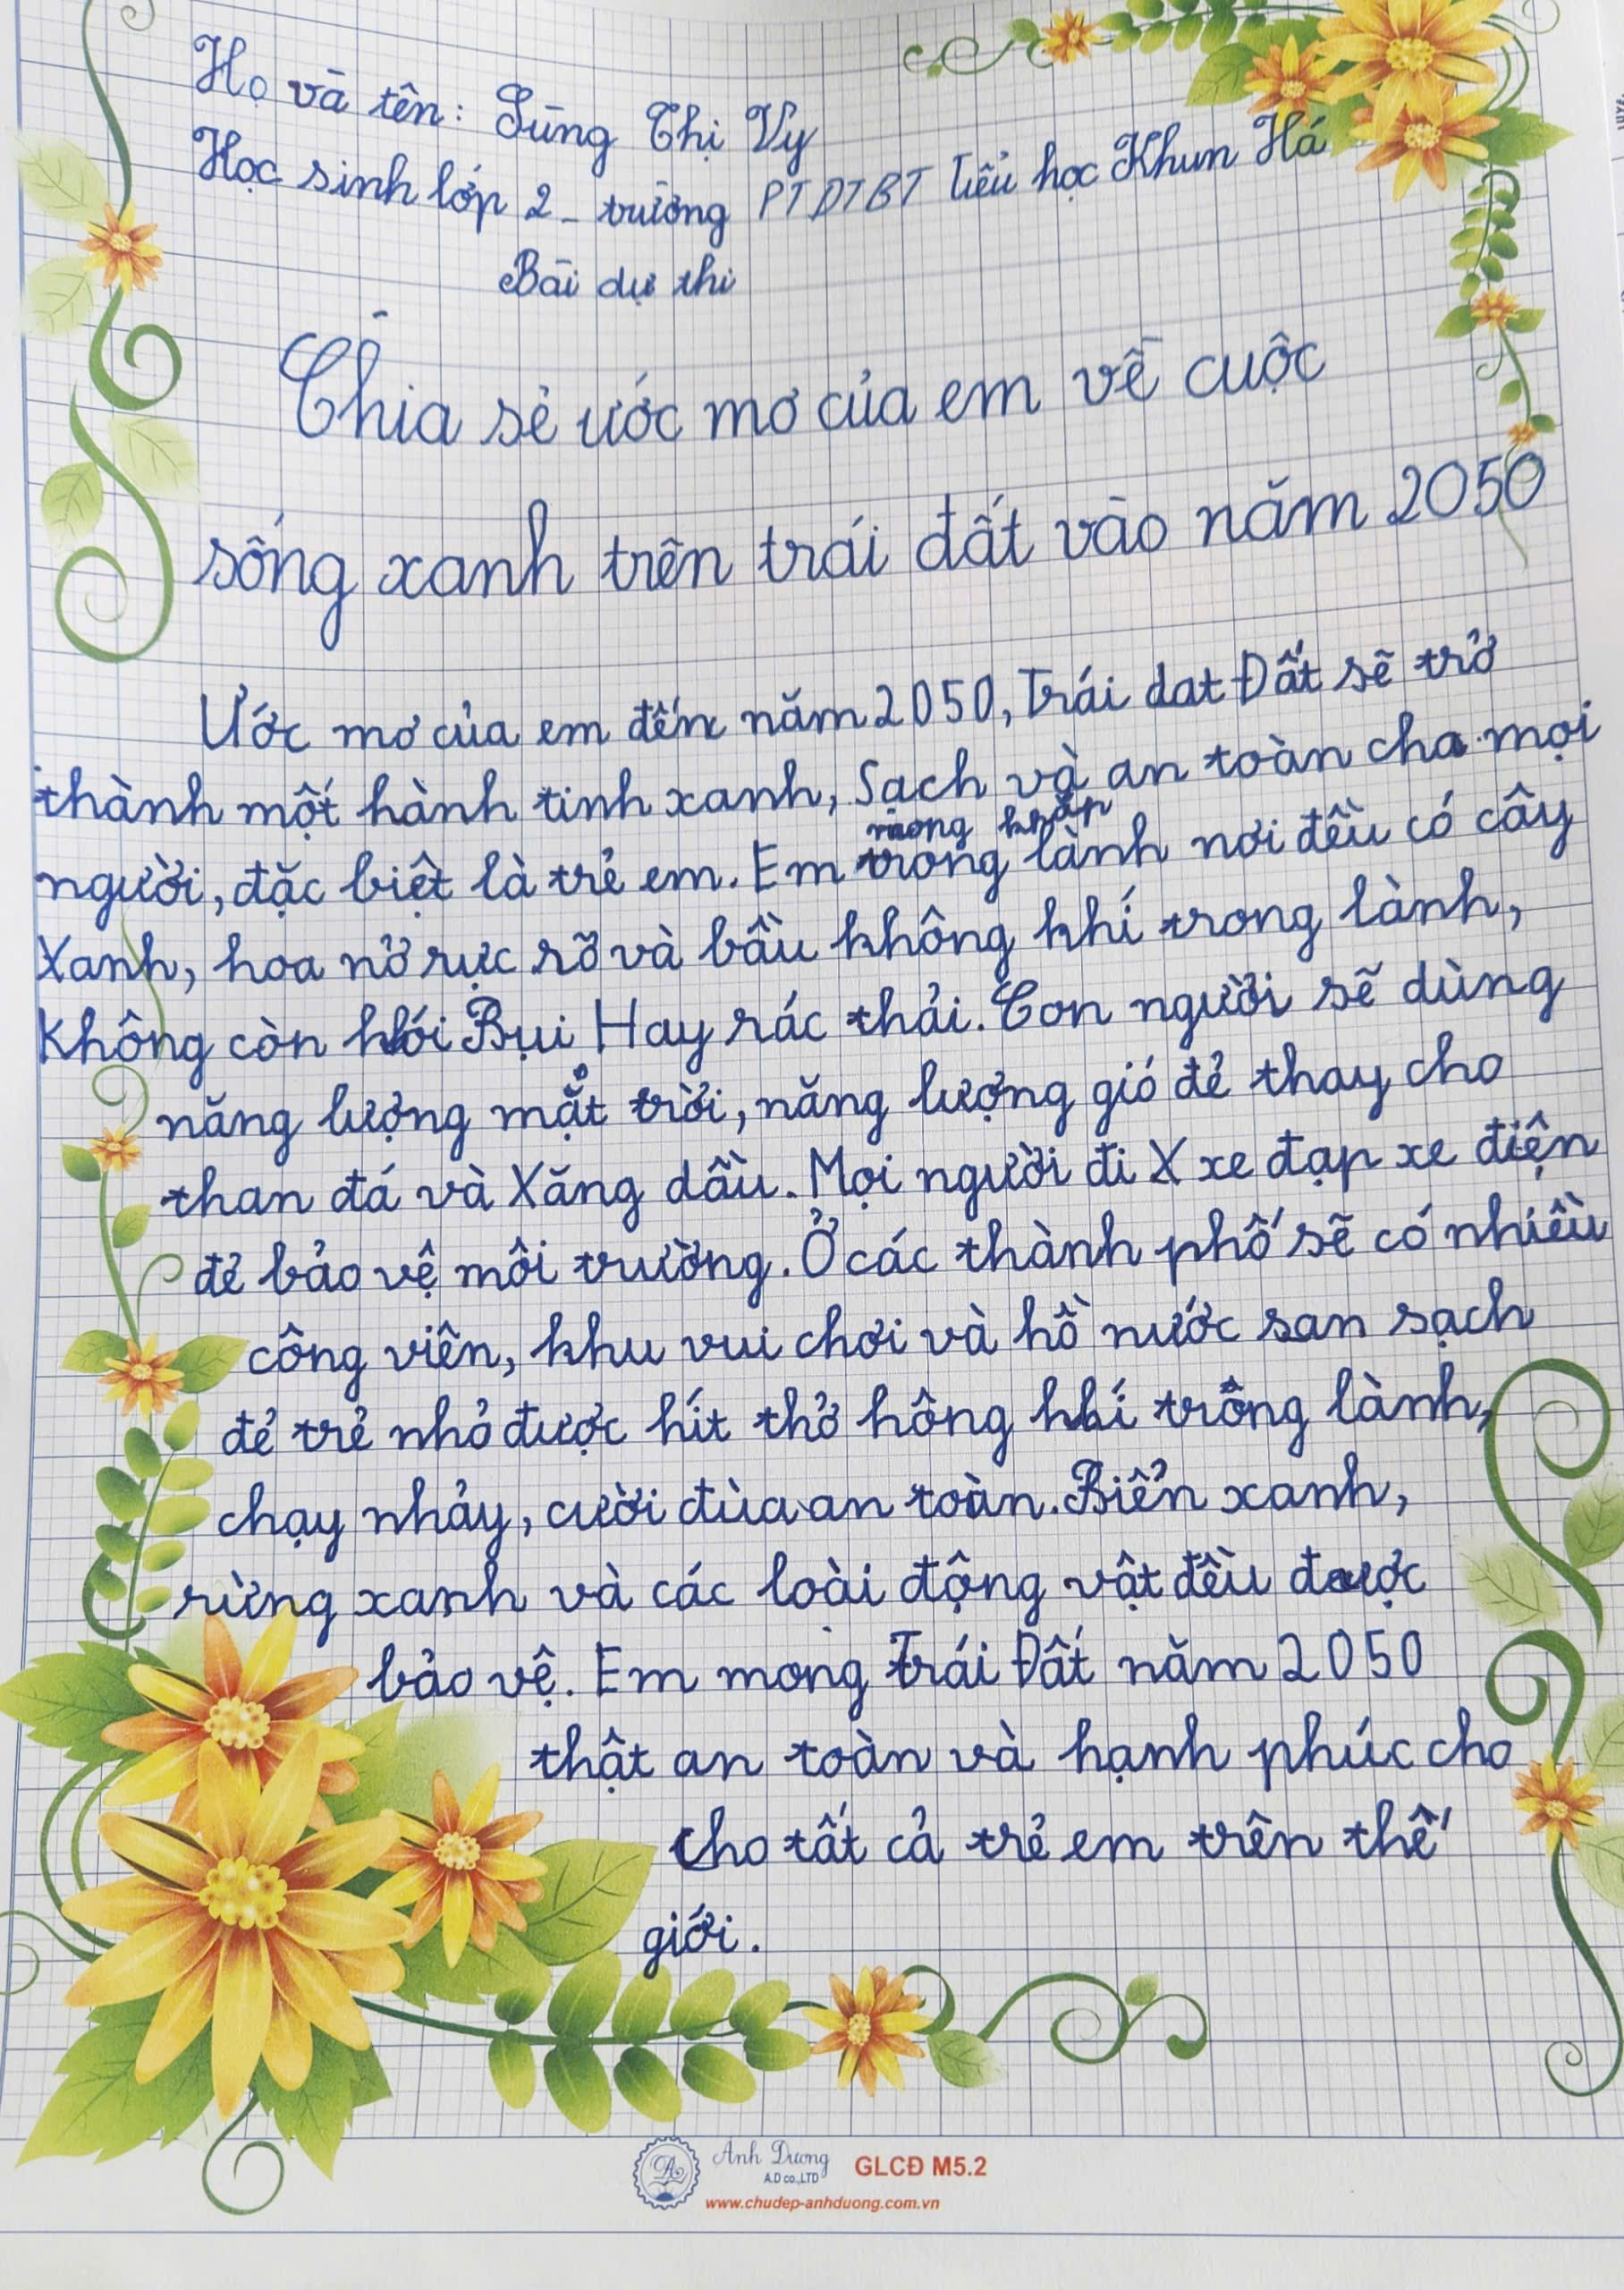 Họ và tên: Sùng Thị Vy
Học sinh lớp 2 - trường PTDTBT Tiểu học Khun Há
Bài dự thi
Chia sẻ ước mơ của em về cuộc
sống xanh trên trái đất vào năm 2050
Ước mơ của em đến năm 2050, Trái dat Đất sẽ trở
thành một hành tinh xanh, Sạch và an toàn cho mọi
người, đặc biệt là trẻ em. Em trong lành nơi đều có cây
mong khắp
Xanh, hoa nở rực rỡ và bầu không khí trong lành,
Không còn khói Bụi Hay rác thải. Con người sẽ dùng
năng lượng mặt trời, năng lượng gió để thay cho
than đá và Xăng dầu. Mọi người đi X xe đạp xe điện
để bảo vệ môi trường. Ở các thành phố sẽ có nhiều
công viên, khu vui chơi và hồ nước san sạch
để trẻ nhỏ được hít thở hông khí trông lành,
chạy nhảy, cười đùa an toàn. Biển xanh,
rừng xanh và các loài động vật đều được
bảo vệ. Em mong Trái Đất năm 2050
thật an toàn và hạnh phúc cho
cho tất cả trẻ em trên thế
giới.
Ánh Dương
A.D co.,LTD
GLCĐ M5.2
www.chudep-anhduong.com.vn